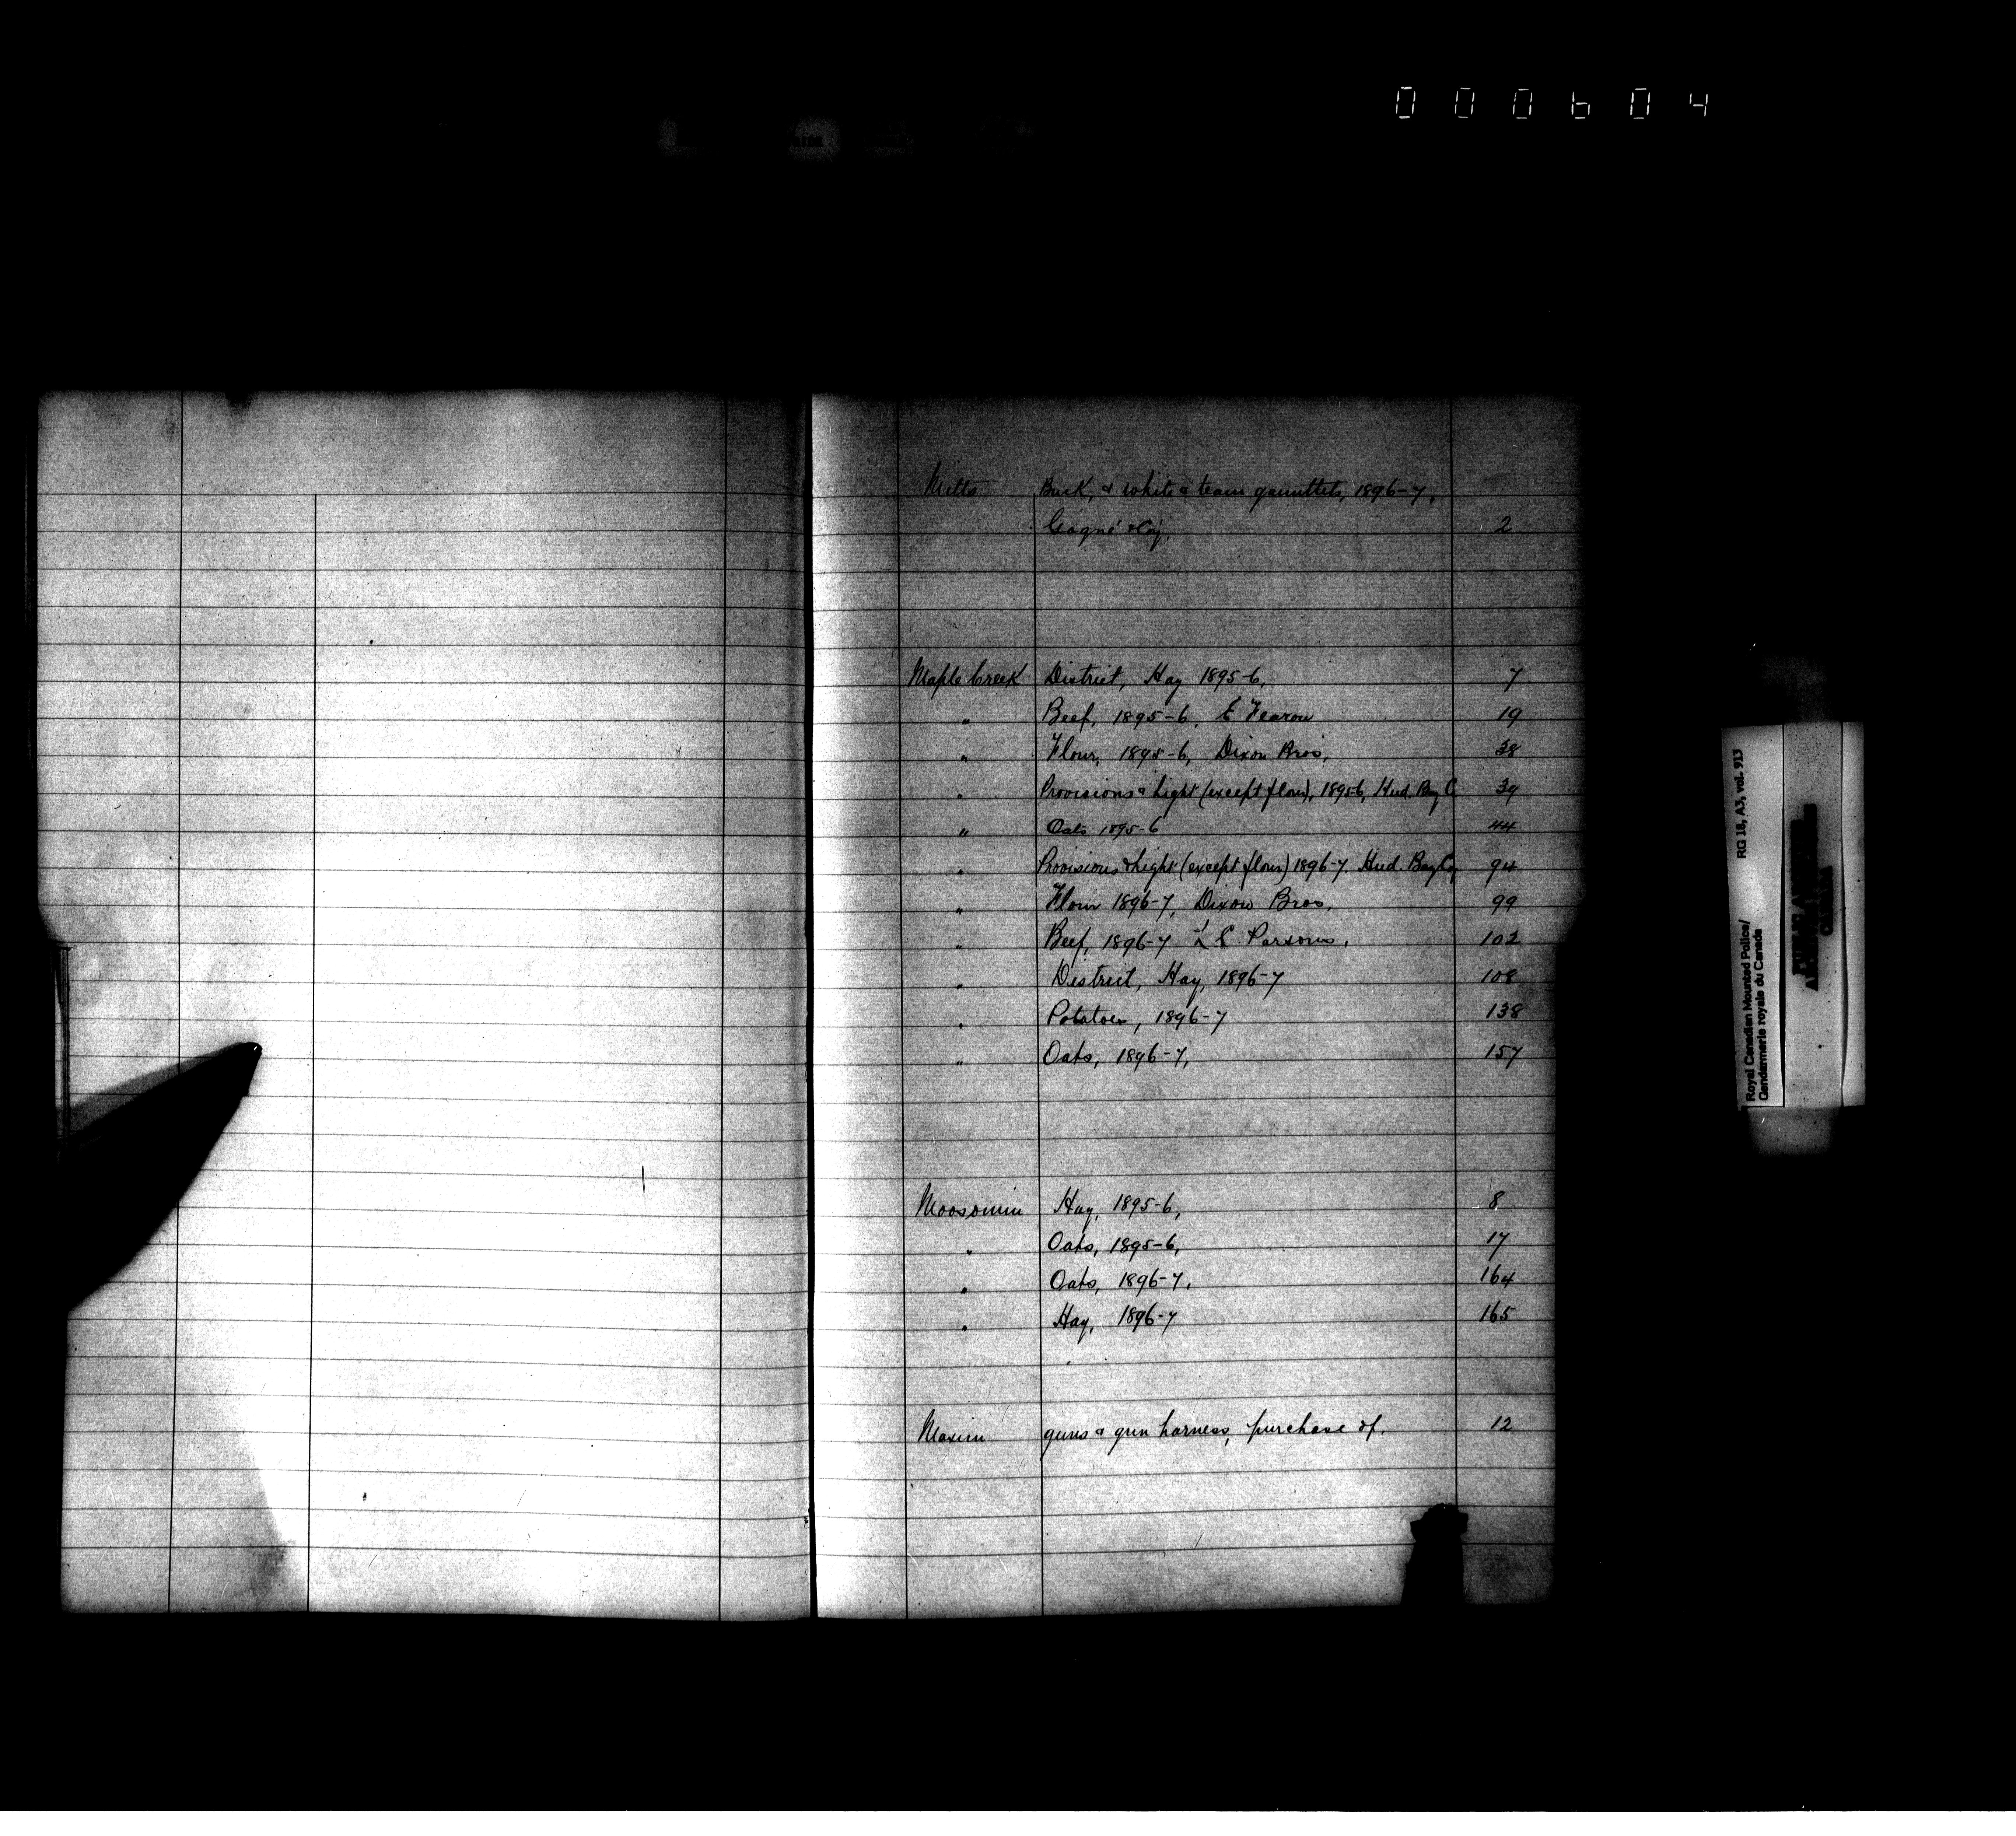 000604
Mitts Buck, & white & team gauntlets, 1896-7,
Gagné & Coy, 2
Maple Creek District, Hay 1895-6, 7
" Beef, 1895-6, E Fearon 19
" Flour, 1895-6, Dixon Bros, 38
" Provisions & Light (except flour), 1895-6, Hud. Bay C 39
" Oats 1895-6 44
" Provisions & Light (except flour) 1896-7. Hud. Bay Coy 94
" Flour 1896-7, Dixon Bros. 99
" Beef, 1896-7 L E Parsons, 102
" District, Hay, 1896-7 108
" Potatoes, 1896-7 138
" Oats, 1896-7, 157
Moosomin Hay, 1895-6, 8
" Oats, 1895-6, 17
" Oats, 1896-7, 164
" Hay, 1896-7 165
Maxim guns & gun harness, purchase of. 12
Royal Canadian Mounted Police/ RG 18, A3, vol. 913
Gendarmerie royale du Canada
PUBLIC ARCHIVES
ARCHIVES PUBLIQUES
CANADA